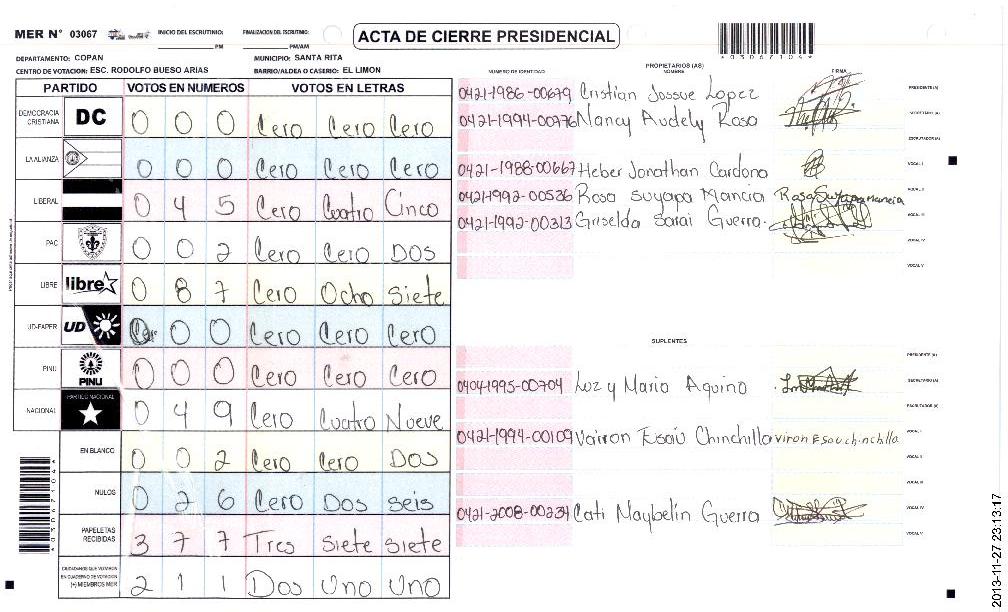 MER N° 03067 INICIO DEL ESCRUTINIO: PM FINALIZACION DEL ESCRUTINIO: PM/AM ACTA DE CIERRE PRESIDENCIAL
*03067104*
DEPARTAMENTO: COPAN MUNICIPIO: SANTA RITA
CENTRO DE VOTACION: ESC. RODOLFO BUESO ARIAS BARRIO/ALDEA O CASERIO: EL LIMON
PARTIDO VOTOS EN NUMEROS VOTOS EN LETRAS
DEMOCRACIA CRISTIANA DC 0 0 0 Cero Cero Cero
LA ALIANZA 0 0 0 Cero Cero Cero
LIBERAL 0 4 5 Cero Cuatro Cinco
PAC 0 0 2 Cero Cero Dos
LIBRE libre 0 8 7 Cero Ocho Siete
UD-FAPER UD 0 0 0 Cero Cero Cero
PINU PINU 0 0 0 Cero Cero Cero
NACIONAL PARTIDO NACIONAL 0 4 9 Cero Cuatro Nueve
EN BLANCO 0 0 2 Cero Cero Dos
NULOS 0 2 6 Cero Dos Seis
PAPELETAS RECIBIDAS 3 7 7 Tres Siete Siete
CIUDADANOS QUE VOTARON EN CUADERNO DE VOTACION (+) MIEMBROS MER 2 1 1 Dos Uno Uno
*03067104*
PROPIETARIOS (AS)
NUMERO DE IDENTIDAD NOMBRE FIRMA
0421-1986-00679 Cristian Jossue Lopez PRESIDENTE(A)
0421-1994-00776 Nancy Audely Rosa SECRETARIO(A)
ESCRUTADOR(A)
0421-1988-00667 Heber Jonathan Cardona VOCAL I
0421-1992-00536 Rosa Suyapa Mancia Rosa Suyapa mancia VOCAL II
0421-1992-00313 Griselda Sarai Guerra. VOCAL III
VOCAL IV
VOCAL V
SUPLENTES
PRESIDENTE(A)
0404-1995-00704 Luz y Maria Aquino SECRETARIO(A)
ESCRUTADOR(A)
0421-1994-00109 Vairon Esaú Chinchilla viron Esau chinchilla VOCAL I
VOCAL II
VOCAL III
0421-2008-00234 Cati Maybelin Guerra VOCAL IV
VOCAL V
2013-11-27 23:13:17